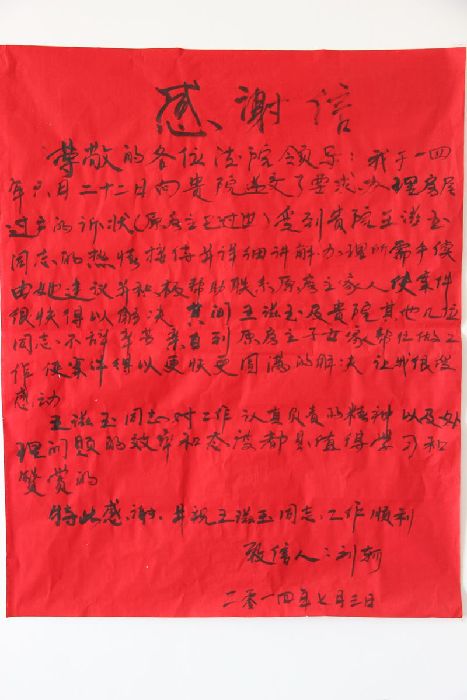 感谢信
尊敬的各位法院领导：我于一四
年六月二十二日向贵院递交了要求办理房屋
过户的诉状（原房主已过世）受到贵院王滋玉
同志的热情接待并详细讲解办理所需手续
由她建议并积极帮助联系原房主家人使案件
很快得以解决 其间王滋玉及贵院其他几位
同志不辞辛苦亲自到原房主子女家帮忙做工
作使案件得以更快更圆满的解决 让我很受
感动
王滋玉同志对工作认真负责的精神以及处
理问题的效率和态度都是值得学习和
赞赏的
特此感谢，并祝王滋玉同志，工作顺利
致信人：刘
二零一四年七月三日